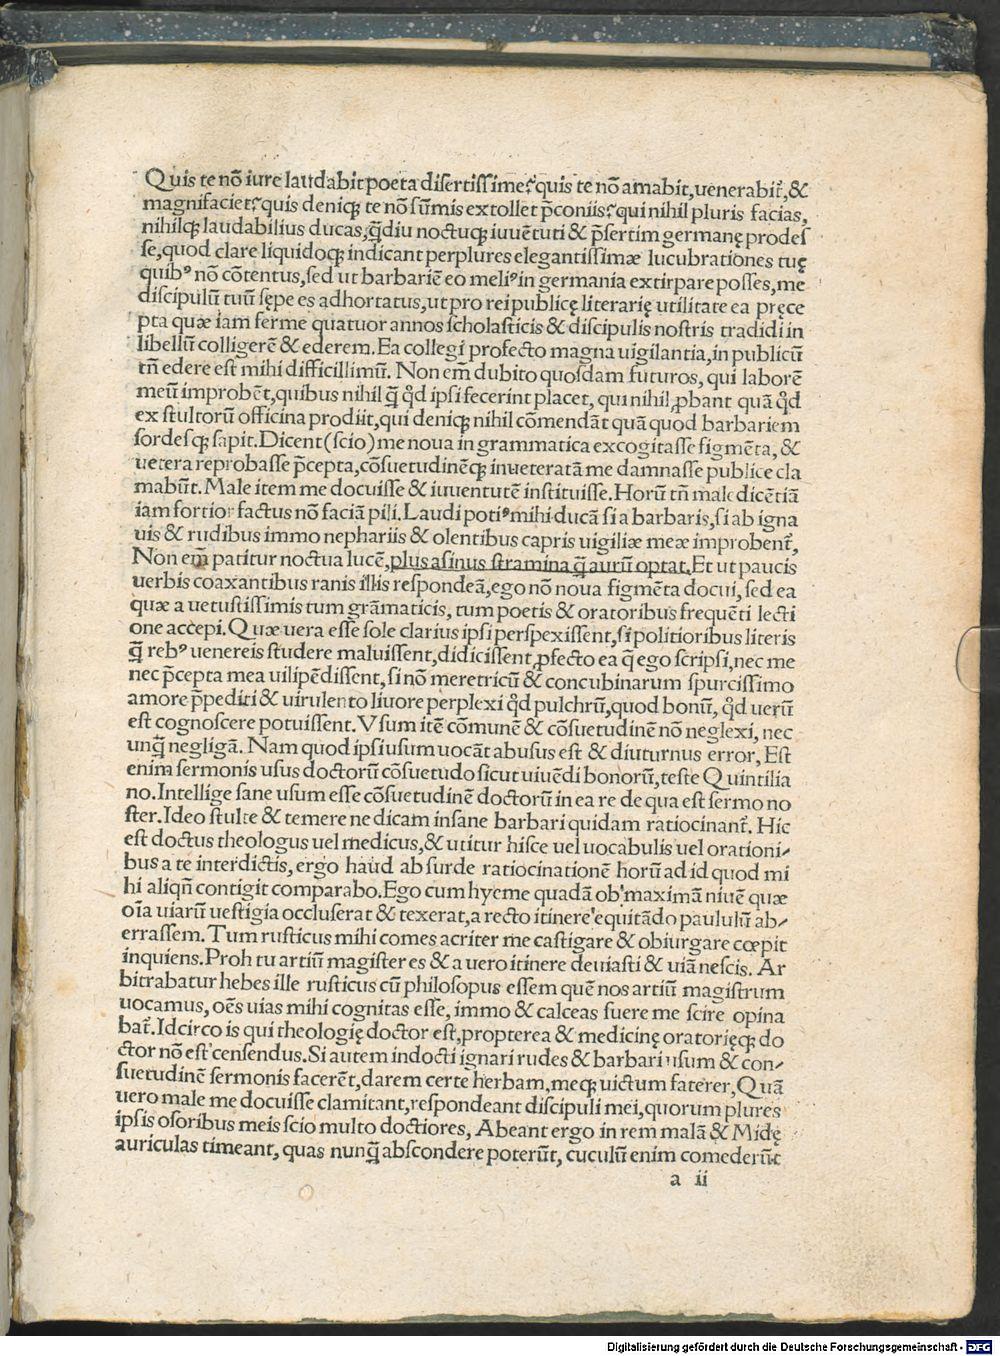 Quis te nõ iure laudabit poeta disertissime? quis te nõ amabit, uenerabit̃, &
magnifaciet? quis deniqꝫ te nõ sũmis extollet p̃coniis? qui nihil pluris facias,
nihilqꝫ laudabilius ducas, q̃diu noctuqꝫ iuuẽtuti & p̃sertim germanę prodes
se, quod clare liquidoqꝫ indicant perplures elegantissimæ lucubrationes tuę
quibꝰ nõ cõtentus, sed ut barbariẽ eo meliꝰ in germania extirpare posses, me
discipulũ tuũ sępe es adhortatus, ut pro rei publicę literarię utilitate ea pręce
pta quæ iam ferme quatuor annos scholasticis & discipulis nostris tradidi in
libellũ colligerẽ & ederem. Ea collegi profecto magna uigilantia, in publicũ
tñ edere est mihi difficillimũ. Non em̃ dubito quosdam futuros, qui laborẽ
meũ improbẽt, quibus nihil q̃ qd̃ ipsi fecerint placet, qui nihil ꝓbant quã qd̃
ex stultorũ officina prodiit, qui deniqꝫ nihil cõmendãt quã quod barbariem
sordesqꝫ sapit. Dicent (scio) me noua in grammatica excogitasse figmẽta, &
uetera reprobasse p̃cepta, cõsuetudinẽqꝫ inueteratã me damnasse publice cla
mabũt. Male item me docuisse & iuuentutẽ instituisse. Horũ tñ maledicẽtiã
iam fortior factus nõ faciã pili. Laudi potiꝰ mihi ducã si a barbaris, si ab igna
uis & rudibus immo nephariis & olentibus capris uigiliæ meæ improbent̃,
Non em̃ patitur noctua lucẽ, plus asinus stramina q̃ aurũ optat. Et ut paucis
uerbis coaxantibus ranis illis respondeã, ego nõ noua figmẽta docui, sed ea
quæ a uetustissimis tum grãmaticis, tum poetis & oratoribus frequẽti lecti
one accepi. Quæ uera esse sole clarius ipsi perspexissent, si politioribus literis
q̃ rebꝰ uenereis studere maluissent, didicissent ꝓfecto ea q̃ ego scripsi, nec me
nec p̃cepta mea uilipẽdissent, si nõ meretricũ & concubinarum spurcissimo
amore p̃pediti & uirulento liuore perplexi qd̃ pulchrũ, quod bonũ, qd̃ uerũ
est cognoscere potuissent. Vsum itẽ cõmunẽ & cõsuetudinẽ nõ neglexi, nec
unq̃ negligã. Nam quod ipsi usum uocãt abusus est & diuturnus error, Est
enim sermonis usus doctorũ cõsuetudo sicut uiuẽdi bonorũ, teste Quintilia
no. Intellige sane usum esse cõsuetudinẽ doctorũ in ea re de qua est sermo no
ster. Ideo stulte & temere ne dicam insane barbari quidam ratiocinant̃. Hic
est doctus theologus uel medicus, & utitur hisce uel uocabulis uel orationi⸗
bus a te interdictis, ergo haud absurde ratiocinationẽ horũ ad id quod mi
hi aliqñ contigit comparabo. Ego cum hyeme quadã ob maximã niuẽ quæ
oĩa uiarũ uestigia occluserat & texerat, a recto itinere equitãdo paululũ ab⸗
errassem. Tum rusticus mihi comes acriter me castigare & obiurgare cœpit
inquiens. Proh tu artiũ magister es & a uero itinere deuiasti & uiã nescis. Ar
bitrabatur hebes ille rusticus cũ philosopus essem quẽ nos artiũ magistrum
uocamus, oẽs uias mihi cognitas esse, immo & calceas suere me scire opina
bat̃. Idcirco is qui theologię doctor est, propterea & medicinę oratorięqꝫ do
ctor nõ est censendus. Si autem indocti ignari rudes & barbari usum & con⸗
suetudinẽ sermonis facerẽt, darem certe herbam, meqꝫ uictum faterer, Quã
uero male me docuisse clamitant, respondeant discipuli mei, quorum plures
ipsis osoribus meis scio multo doctiores, Abeant ergo in rem malã & Midę
auriculas timeant, quas nunq̃ abscondere poterũt, cuculũ enim comederũt
a ii
Digitalisierung gefördert durch die Deutsche Forschungsgemeinschaft - DFG